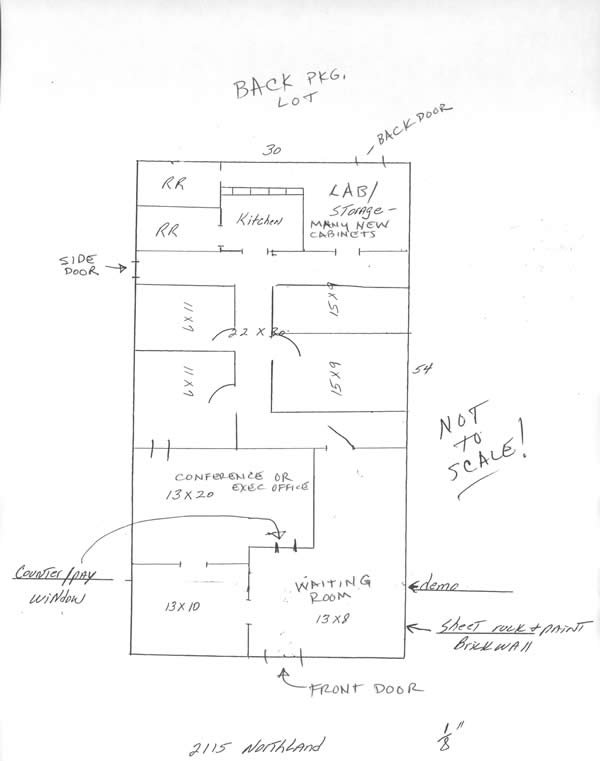 BACK PKG.
LOT
BACK DOOR
30
RR
LAB/
STORAGE -
MANY NEW
CABINETS
Kitchen
RR
SIDE
DOOR
11 x 9
15 x 9
22 x 30
11 x 9
15 x 9
54
NOT
TO
SCALE!
CONFERENCE OR
EXEC OFFICE
13 x 20
Counter/pay
window
WAITING
ROOM
13 x 8
13 x 10
demo
Sheet rock + paint
Brick wall
FRONT DOOR
2115 Northland
1/8"